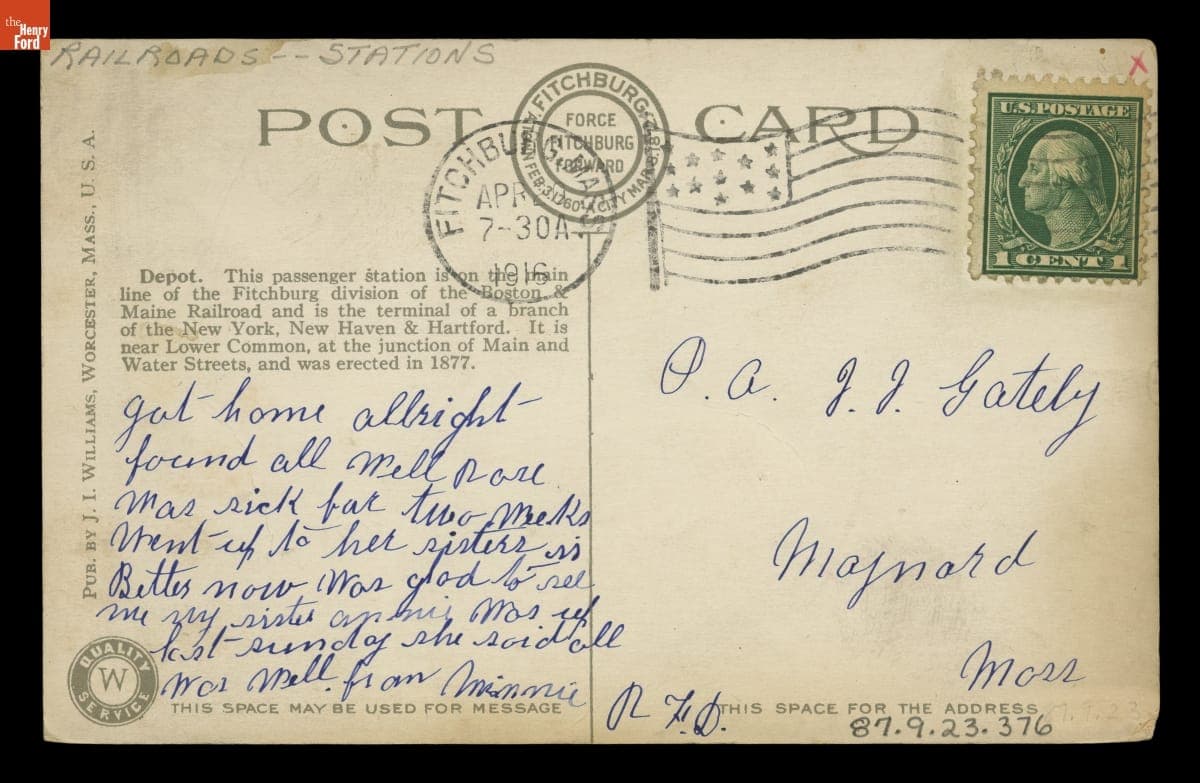 the
Henry
Ford
RAILROADS -- STATIONS
x
POST CARD
FITCHBURG
FORCE
FITCHBURG
FORWARD
FEB. 3. 1760 A CITY MAR. 8, 187
FITCHBURG, MASS.
APR
7-30A
1916
U.S. POSTAGE
1 CENT 1
Depot. This passenger station is on the main
line of the Fitchburg division of the Boston &
Maine Railroad and is the terminal of a branch
of the New York, New Haven & Hartford. It is
near Lower Common, at the junction of Main and
Water Streets, and was erected in 1877.
PUB. BY J. I. WILLIAMS, WORCESTER, MASS., U. S. A.
got home allright
found all well Rose
was sick for two weeks
went up to her sisters is
Better now was glad to see
me my sister annie was up
last sunday she said all
was well. from Minnie
P. A. J. J. Gately
Maynard
Mass
R F. D.
QUALITY
W
SERVICE
THIS SPACE MAY BE USED FOR MESSAGE
THIS SPACE FOR THE ADDRESS
87.9.23.376